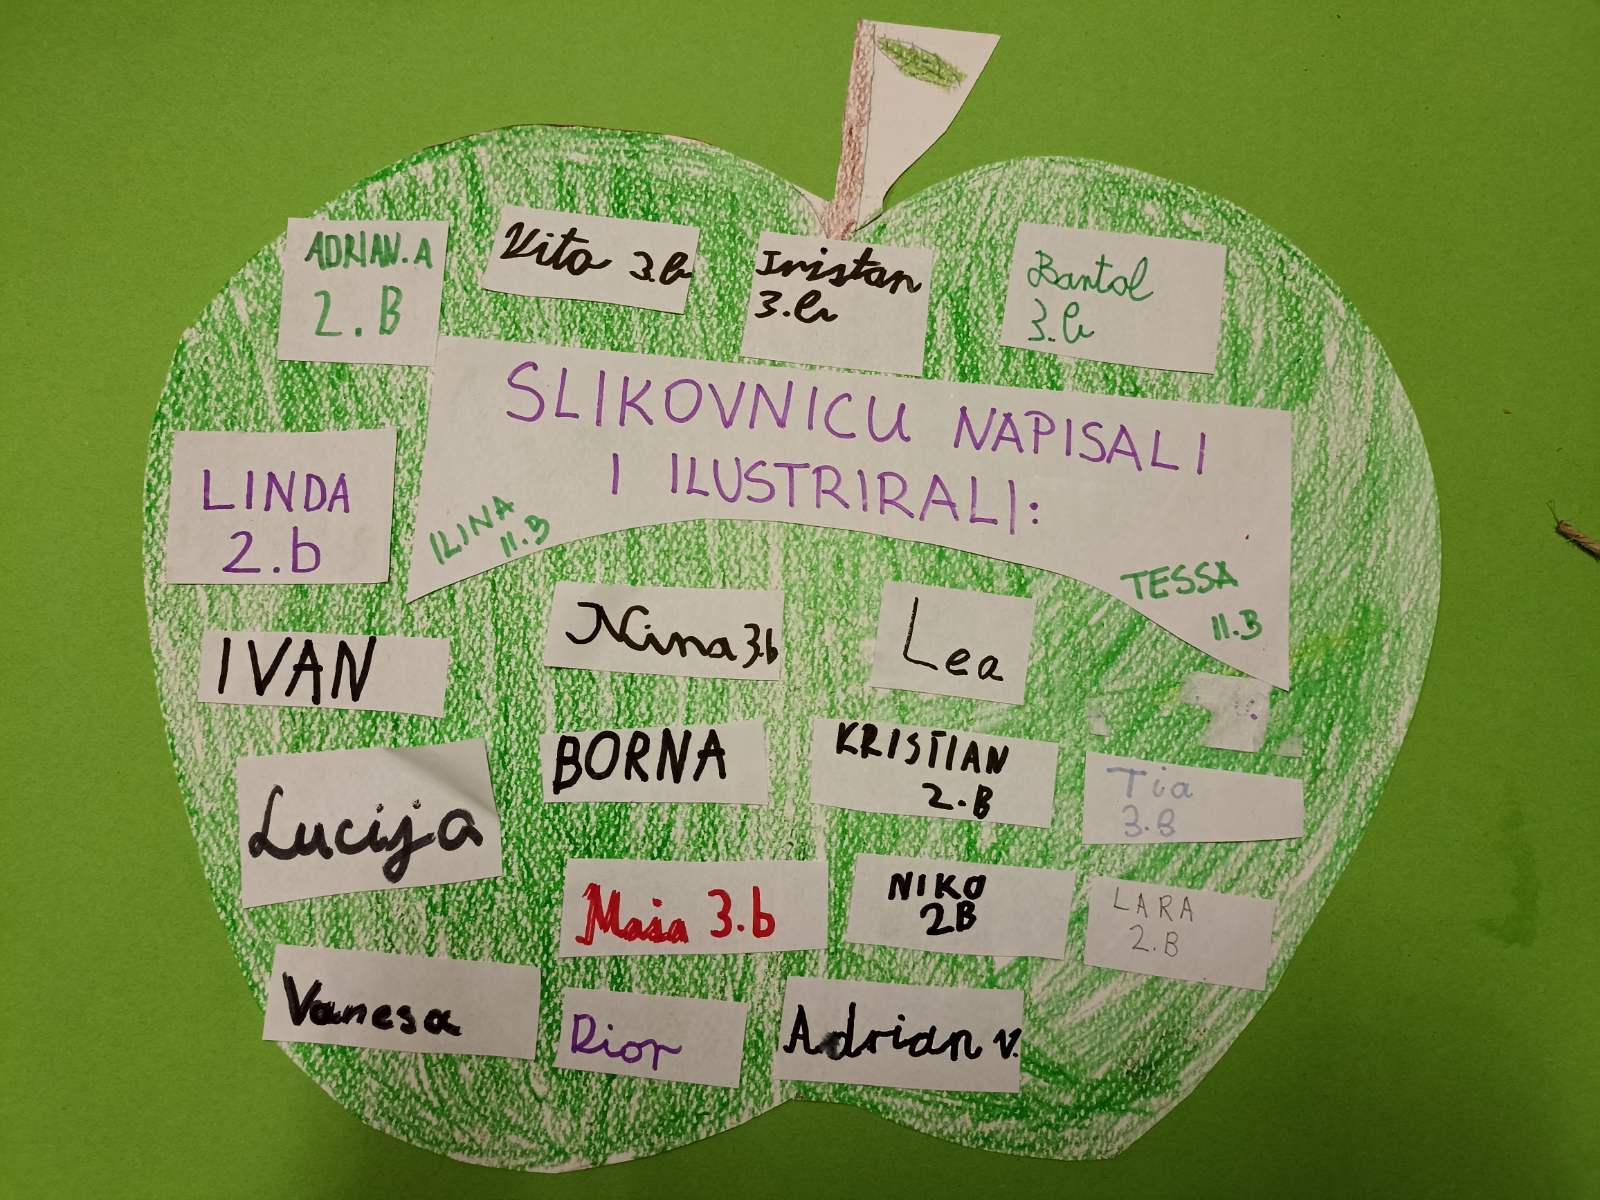 ADRIAN.A
2.B
Vito 3.b
Tristan
3.b
Bartol
3.b
SLIKOVNICU NAPISALI
I ILUSTRIRALI:
ILINA
II.B
TESSA
II.B
LINDA
2.b
IVAN
Nina 3.b
Lea
Lucija
BORNA
KRISTIAN
2.B
Tia
3.B
Maša 3.b
NIKO
2B
LARA
2.B
Vanesa
Dior
Adrian V.